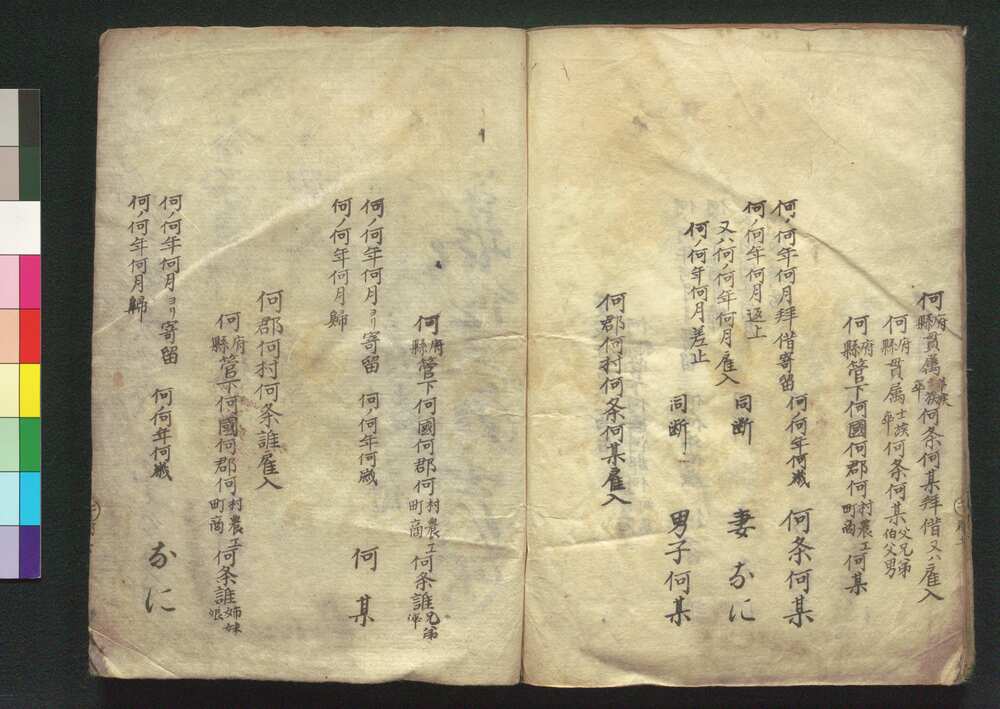 何府縣貫属華族士族卒何条何某拜借又ハ雇入
何府縣貫属士族卒何条何某父兄弟伯父男
何府縣管下何國何郡何村町農工商何某
何ノ何年何月拜借寄留 何ノ何年何歳 何条何某
何ノ何年何月返上
又ハ何ノ何年何月雇入 同断 妻 なに
何ノ何年何月差止 同断 男子何某
何郡何村何条何某雇入
何府縣管下何國何郡何村町農工商何条誰兄弟伜
何ノ何年何月ヨリ寄留 何ノ何年何歳 何某
何ノ何年何月歸
何郡何村何条誰雇入
何府縣管下何國何郡何村町農工商何条誰姉妹娘
何ノ何年何月ヨリ寄留 何ノ何年何歳 なに
何ノ何年何月歸